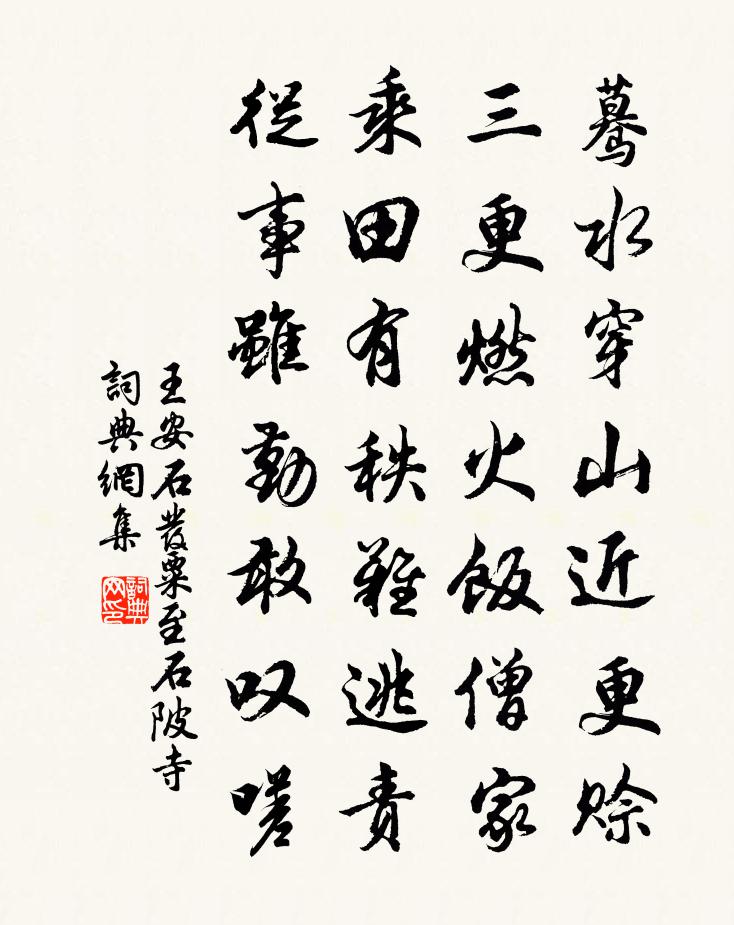 驀水穿山近更賒
三更燃火飯僧家
乘田有秩難逃責
從事雖勤敢叹嗟
王安石發粟至石陂寺
詞典網集
詞典網印